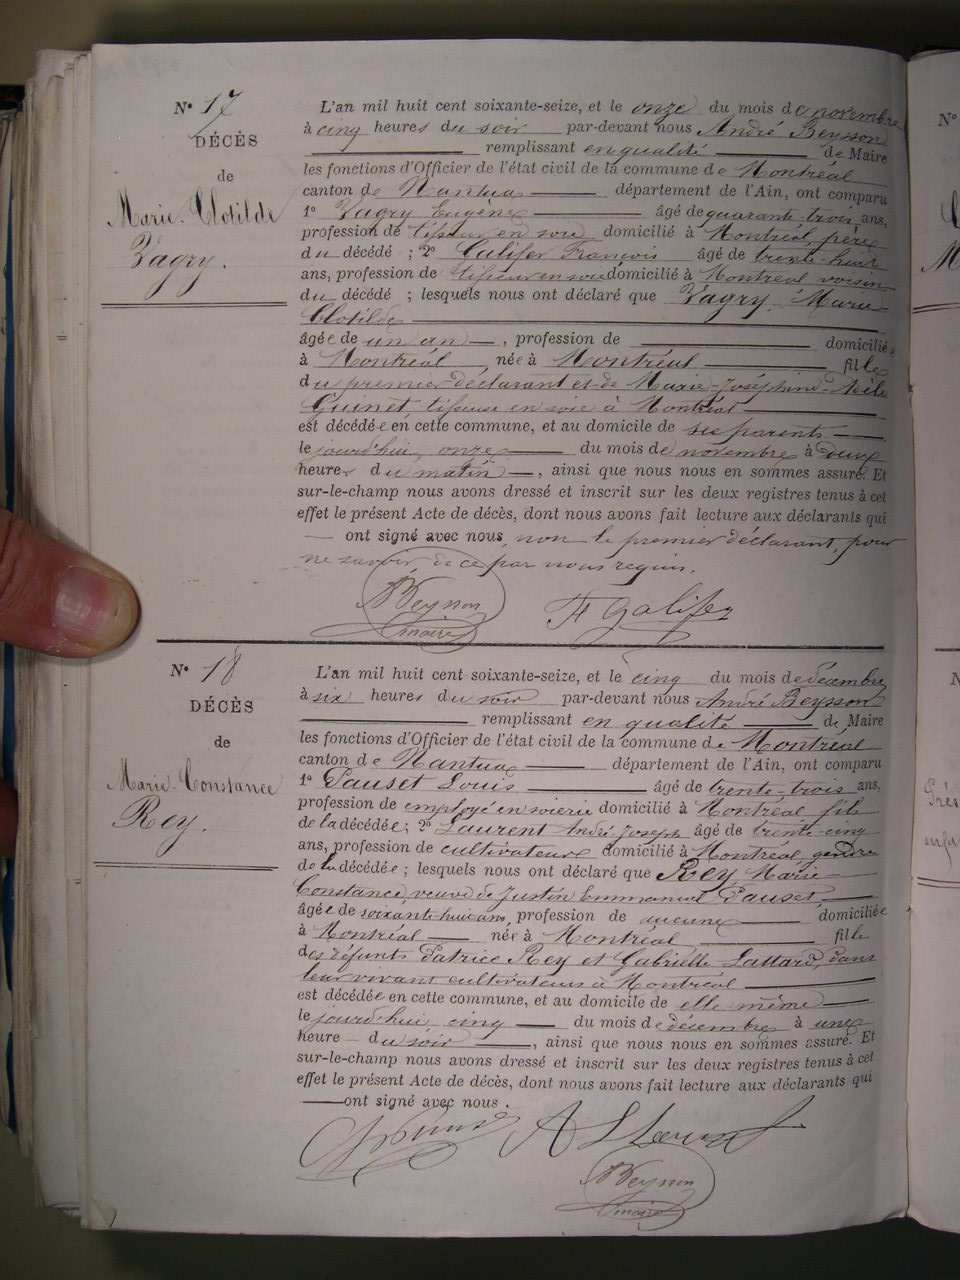 N° 17
DÉCÈS
de
Marie-Clotilde
Zagry.
L'an mil huit cent soixante-seize, et le onze du mois de novembre
à cinq heures du soir par-devant nous André Beysson
remplissant en qualité de Maire
les fonctions d'Officier de l'état civil de la commune de Montréal
canton de Nantua département de l'Ain, ont comparu
1° Zagry Eugène âgé de quarante-trois ans,
profession de tisseur en soie domicilié à Montréal, père
du décédé ; 2° Galifer François âgé de trente-huit
ans, profession de tisseur en soie domicilié à Montréal voisin
du décédé ; lesquels nous ont déclaré que Zagry Marie
Clotilde
âgée de un an, profession de domiciliée
à Montréal, née à Montréal fille
du premier déclarant et de Marie-Joséphine
Guinet, tisseuse en soie à Montréal
est décédée en cette commune, et au domicile de ses parents
le jourd'hui onze du mois de novembre à deux
heures du matin, ainsi que nous nous en sommes assuré. Et
sur-le-champ nous avons dressé et inscrit sur les deux registres tenus à cet
effet le présent Acte de décès, dont nous avons fait lecture aux déclarants qui
ont signé avec nous, non le premier déclarant, pour
ne savoir, de ce par nous requis.
Beysson
maire
F Galifer
N° 18
DÉCÈS
de
Marie-Constance
Rey.
L'an mil huit cent soixante-seize, et le cinq du mois de décembre
à six heures du soir par-devant nous André Beysson
remplissant en qualité de Maire
les fonctions d'Officier de l'état civil de la commune de Montréal
canton de Nantua département de l'Ain, ont comparu
1° Pauset Louis âgé de trente-trois ans,
profession de employé en soierie domicilié à Montréal fils
de la décédée; 2° Laurent André Joseph âgé de trente-cinq
ans, profession de cultivateur domicilié à Montréal gendre
de la décédée; lesquels nous ont déclaré que Rey Marie
Constance, veuve de Justin Emmanuel Pauset
âgée de soixante-huit ans, profession de aucune domiciliée
à Montréal née à Montréal fille
des défunts Patrice Rey et Gabrielle Lattard, dans
leur vivant cultivateurs à Montréal
est décédée en cette commune, et au domicile de elle même
le jourd'hui cinq du mois de décembre à une
heure du soir, ainsi que nous nous en sommes assuré. Et
sur-le-champ nous avons dressé et inscrit sur les deux registres tenus à cet
effet le présent Acte de décès, dont nous avons fait lecture aux déclarants qui
ont signé avec nous.
Beysson
maire